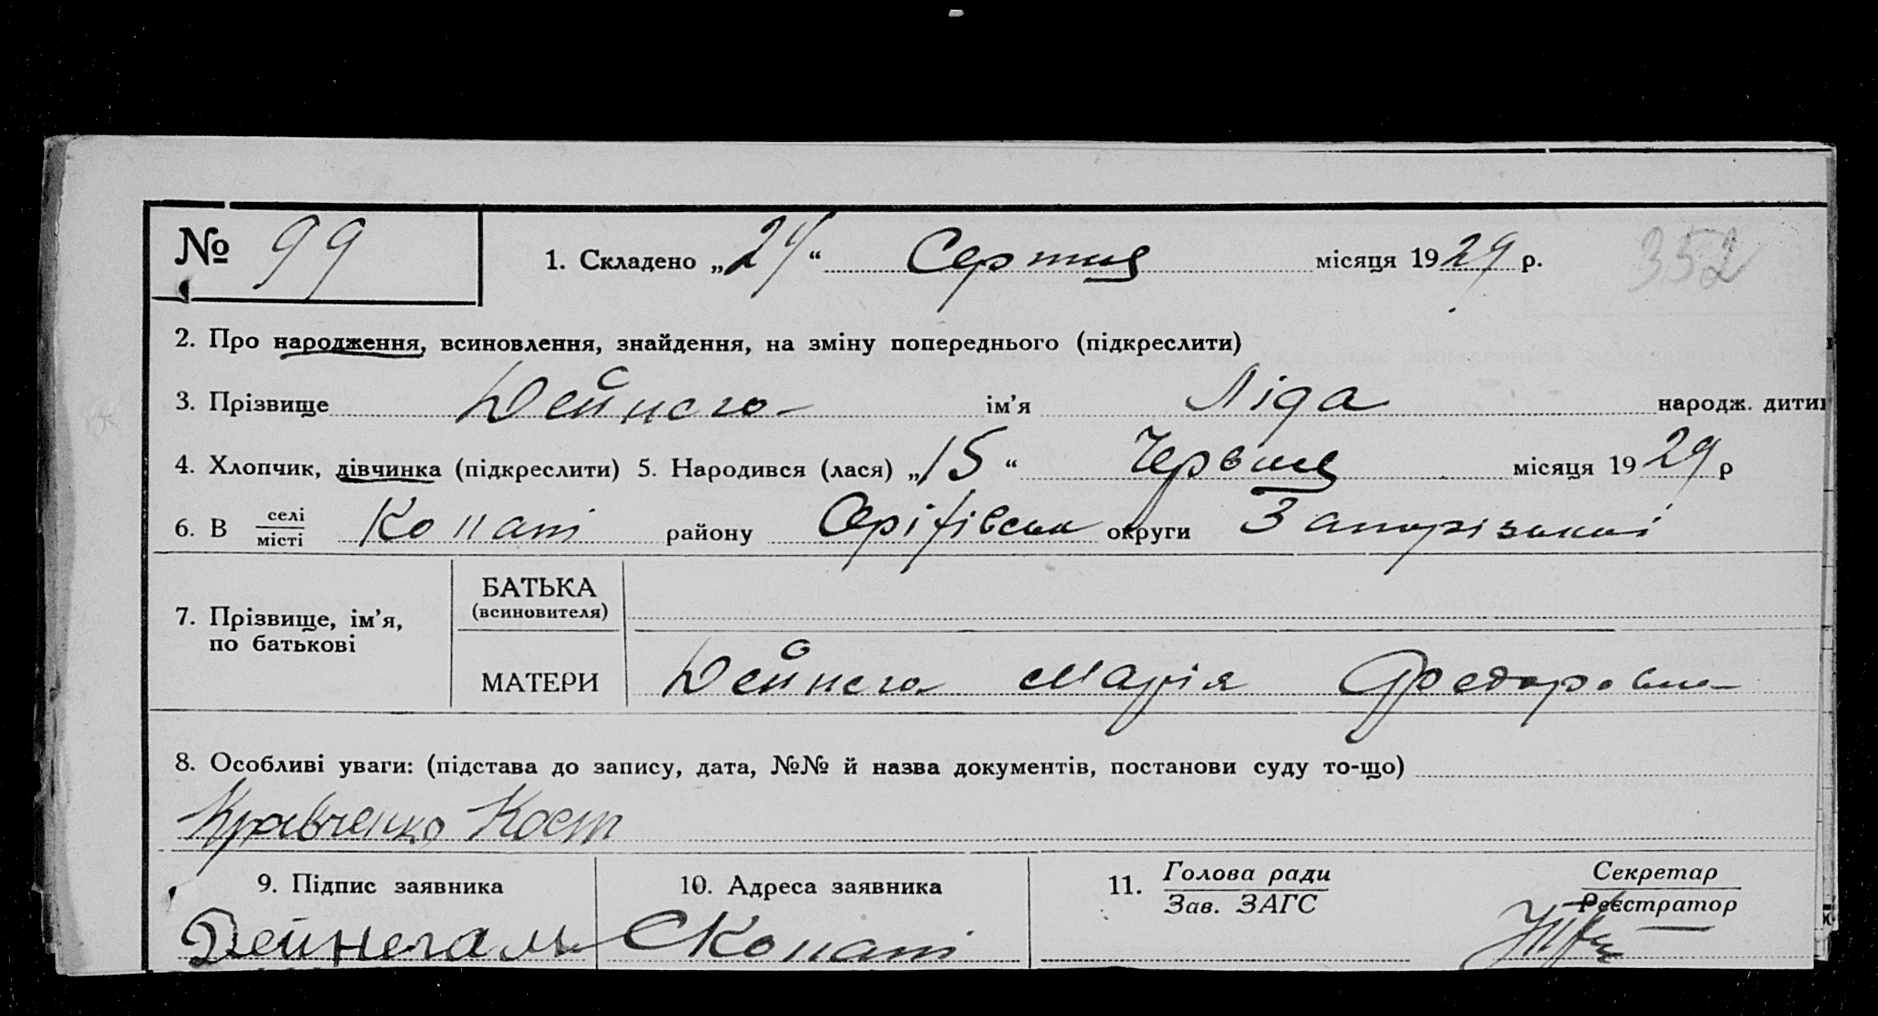 № 99 1. Складено „24“ Серпня місяця 1929 р. 352
2. Про народження, всиновлення, знайдення, на зміну попереднього (підкреслити)
3. Прізвище Дейнега ім’я Ліда народж. дитин
4. Хлопчик, дівчинка (підкреслити) 5. Народився (лася) „15“ Червня місяця 1929 р
6. В селі місті Копані району округи Запорізької
БАТЬКА
(всиновителя)
7. Прізвище, ім’я,
по батькові
МАТЕРИ Дейнега Марія Федоровна
8. Особливі уваги: (підстава до запису, дата, №№ й назва документів, постанови суду то-що)
Кравченко Кост
9. Підпис заявника 10. Адреса заявника 11. Голова ради Секретар
Зав. ЗАГС Реєстратор
Дейнега М С Копані